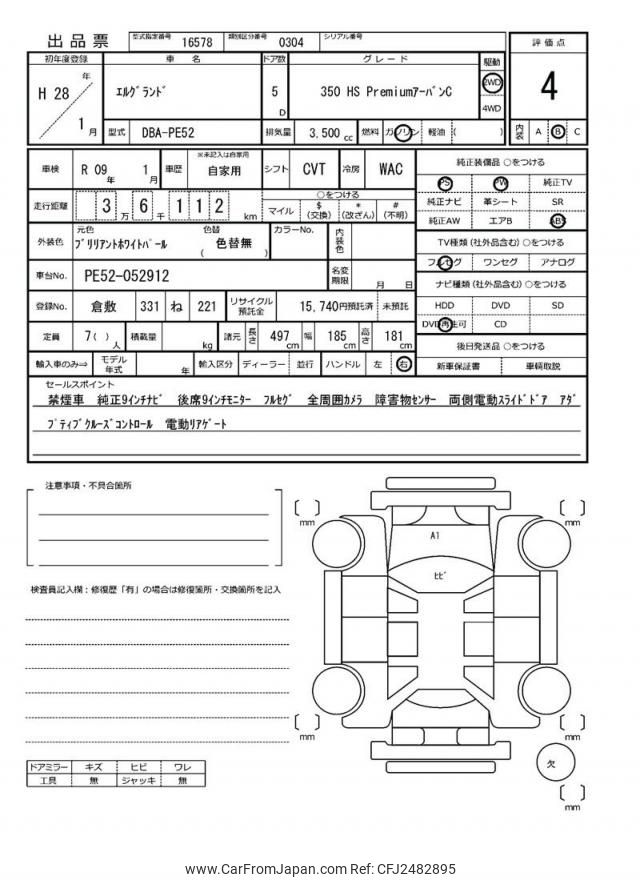 出品票 型式指定番号 16578 類別区分番号 0304 シリアル番号
初年度登録 車名 ドア数 グレード 駆動 評価点
H 28 年 1 月 ｴﾙｸﾞﾗﾝﾄﾞ 5 D 350 HS PremiumｱｰﾊﾞﾝC 2WD 4WD 4
型式 DBA-PE52 排気量 3,500 cc 燃料 ガソリン 軽油 ( ) 内装 A B C
車検 R 09 年 1 月 車歴 ※未記入は自家用 自家用 シフト CVT 冷房 WAC
走行距離 3 万 6 千 1 1 2 km ○をつける マイル $ (交換) * (改ざん) # (不明)
外装色 元色 ﾌﾞﾘﾘｱﾝﾄﾎﾜｲﾄﾊﾟｰﾙ 色替 ( 色替無 ) カラーNo. 内装色
車台No. PE52-052912 名変期限 月 日
登録No. 倉敷 331 ね 221 リサイクル預託金 15,740円預託済 未預託
定員 7( ) 人 積載量 kg 諸元 長さ 497 cm 幅 185 cm 高さ 181 cm
輸入車のみ⇒ モデル年式 年 輸入区分 ディーラー 並行 ハンドル 左 右
純正装備品 ○をつける
PS PW 純正TV
純正ナビ 革シート SR
純正AW エアB ABS
TV種類 (社外品含む) ○をつける
フルセグ ワンセグ アナログ
ナビ種類 (社外品含む) ○をつける
HDD DVD SD
DVD再生可 CD
後日発送品 ○をつける
新車保証書 車輌取説
セールスポイント
禁煙車 純正9ｲﾝﾁﾅﾋﾞ 後席9ｲﾝﾁﾓﾆﾀｰ ﾌﾙｾｸﾞ 全周囲ｶﾒﾗ 障害物ｾﾝｻｰ 両側電動ｽﾗｲﾄﾞﾄﾞｱ ｱﾀﾞ
ﾌﾟﾃｨﾌﾞｸﾙｰｽﾞｺﾝﾄﾛｰﾙ 電動ﾘｱｹﾞｰﾄ
注意事項・不具合箇所
検査員記入欄：修復歴「有」の場合は修復箇所・交換箇所を記入
ドアミラー キズ ヒビ ワレ
工具 無 ジャッキ 無
mm
mm
A1
ﾋﾋﾞ
mm
mm
欠
mm
www.CarFromJapan.com Ref: CFJ2482895